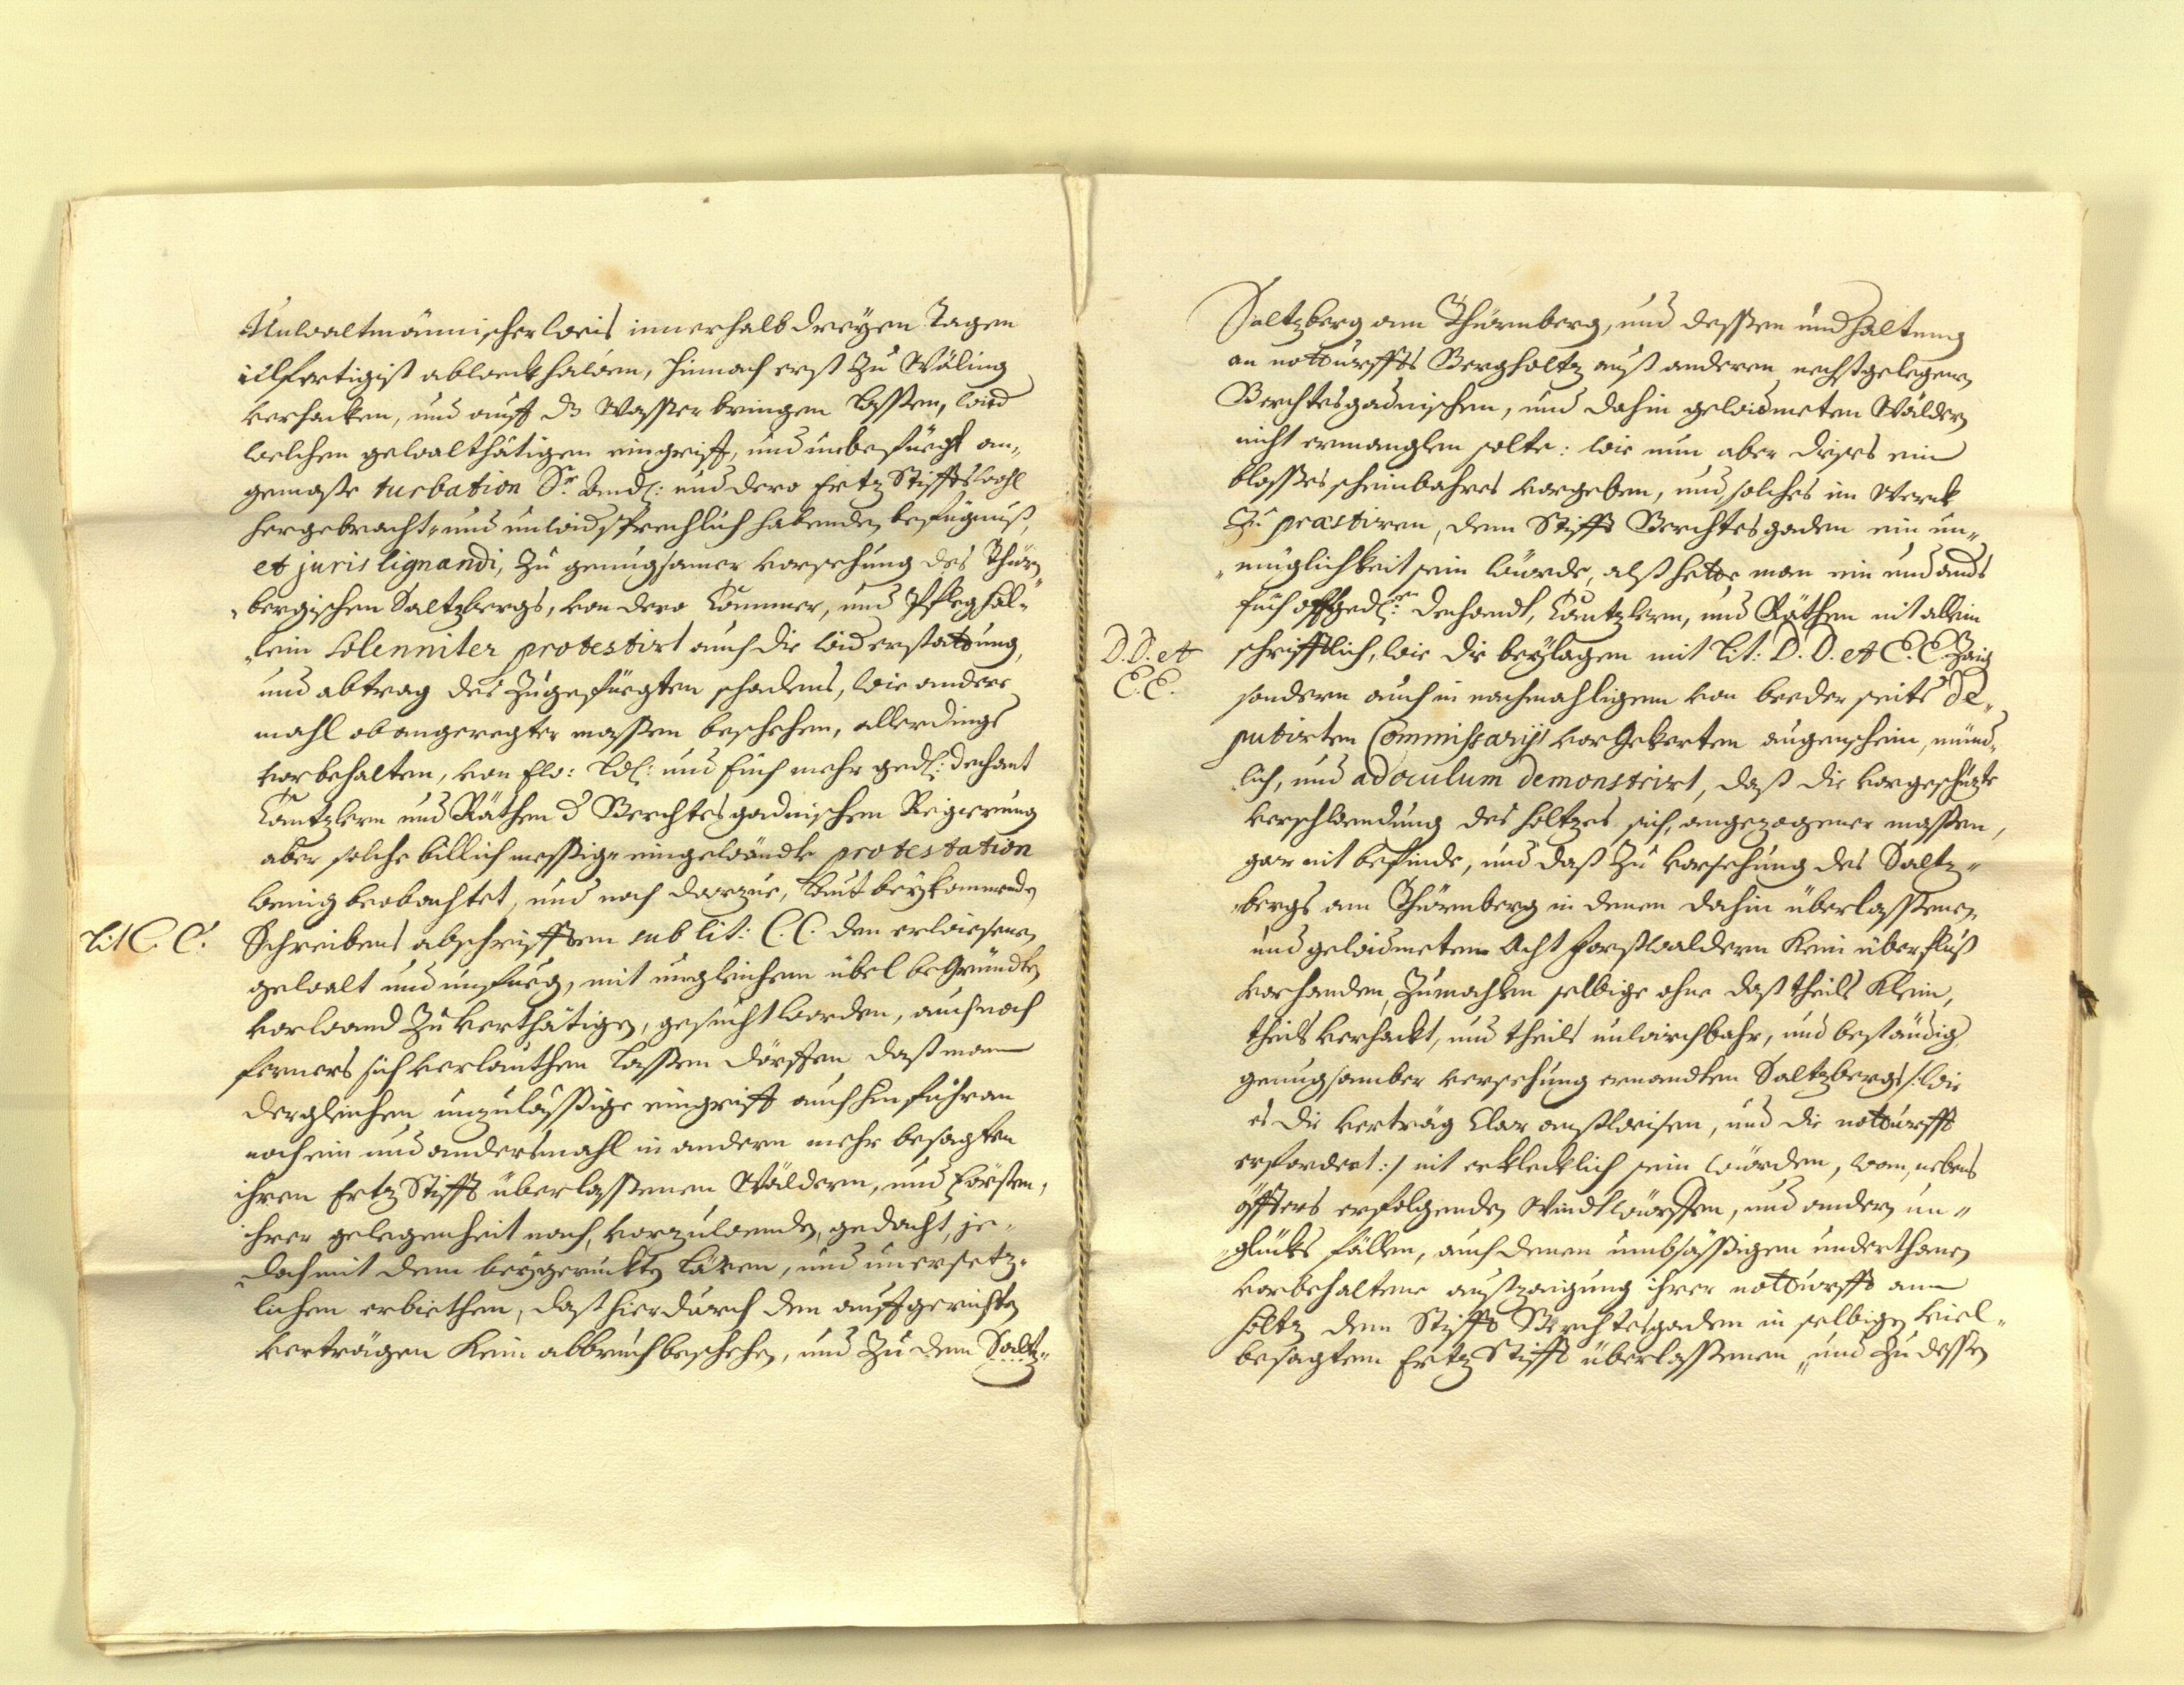 Unwaltmännischer weis innerhalb dreyen Tagen
eilfertigist abloekhalden, hinnach erst Zu Wäling
verhacken, und auff dz Wasser bringen lassen, wid
welchen gewalthätigen eingriff, und unbefuegt an„
gemaste turbation Sr. Gndl: und dero Ertz Stiffts wohl
hergebracht, und unwidersprechlich habenden befuegnuß,
et juris lignandi, Zu genuegsamer vorsehung des Thürn„
„bergischen Saltzbergs, von dero Cammer, und Pfleg hal„
„lein Solenniter protestirt auch die widerstattung,
und abtrag des Zugefüegten schadens, wie anders
mahl obangeregter massen beschehen, allerdings
vorbehalten, von Elo: Ldl: und Euch mehr gedl: dechant
Cantzlern und Räthen d Berchtesgadnischen Regierung
aber solche billich messige eingewändte protestation
wenig beobachtet, und noch darzue, laut beykommenden
Lit C. C. Schreibens abschrifften sub lit: C. C. den erwisenen
gewalt und unfueg, mit ungleichem übel begründten
vorwand Zu verthätigen, gesucht worden, auch noch
ferners sich verlauthen lassen dörffen, daß man
dergleichen unzulässige eingriff auch hinführan
noch ein und andersmahl in andern mehr besagten
ihren Ertz Stifft überlassenen Wäldern, und Försten,
ihrer gelegenheit nach, vorzuwenden, gedacht, je„
doch mit dem beygeruckten lären, und unersetz„
lichen erbiethen, daß hierdurch den auffgerichten
verträgen kein abbruch beschehen, und Zu dem Saltz„
Saltzberg am Thürnberg, und dessen undhaltung
an notturffts Bergholtz auß anderen nechstgelegenen
Berchtesgadnischen, und dahin gewidmeten Wälder
nicht ermanglen solte: wie nun aber dises ein
blosses scheinbahres vorgeben, und solches im Werck
Zu praestiren, dem Stifft Berchtesgaden ein un„
„müglichkeit sein wurde, alß hette man ein und anders
Euch offtgedl: dechandt, Cantzlern, und Räthen nit allein
D. D. et E. E. schrifftlich, wie die beylagen mit Lit: D. D. et E. E. Zaig
sondern auch in nachmahligem von beeder seits de„
putirten Commissarijs vorgekerten augenschein, münd„
„lich, und ad oculum demonstrirt, daß die vorgeschüzte
verschwendung des holtzes sich, angezogener massen,
gar nit befinde, und daß Zu vorsehung des Saltz„
„bergs am Thürnberg in denen dahin überlassenen,
und gewidmeten Acht forstwaldern kein überfluß
vorhanden, Zumahlen selbige ohne daß theils klein,
theils verhackt, und theils unwirchbahr, und beständig
genuegsamber versehung ernandten Saltzbergs /: wie
es die verträg klar außweisen, und die notturfft
erfordert :/ nit erklecklich sein würden, wan, nebens
öffters erfolgenden Windtwürffen, und anderen un„
„glücks fällen, auch denen umbsässigen underthanen
vorbehaltene außzaigung ihrer notturfft am
holtz dem Stifft Berchtesgaden in selbigen viel„
besagtem Ertz Stifft überlassenen, und Zu dessen